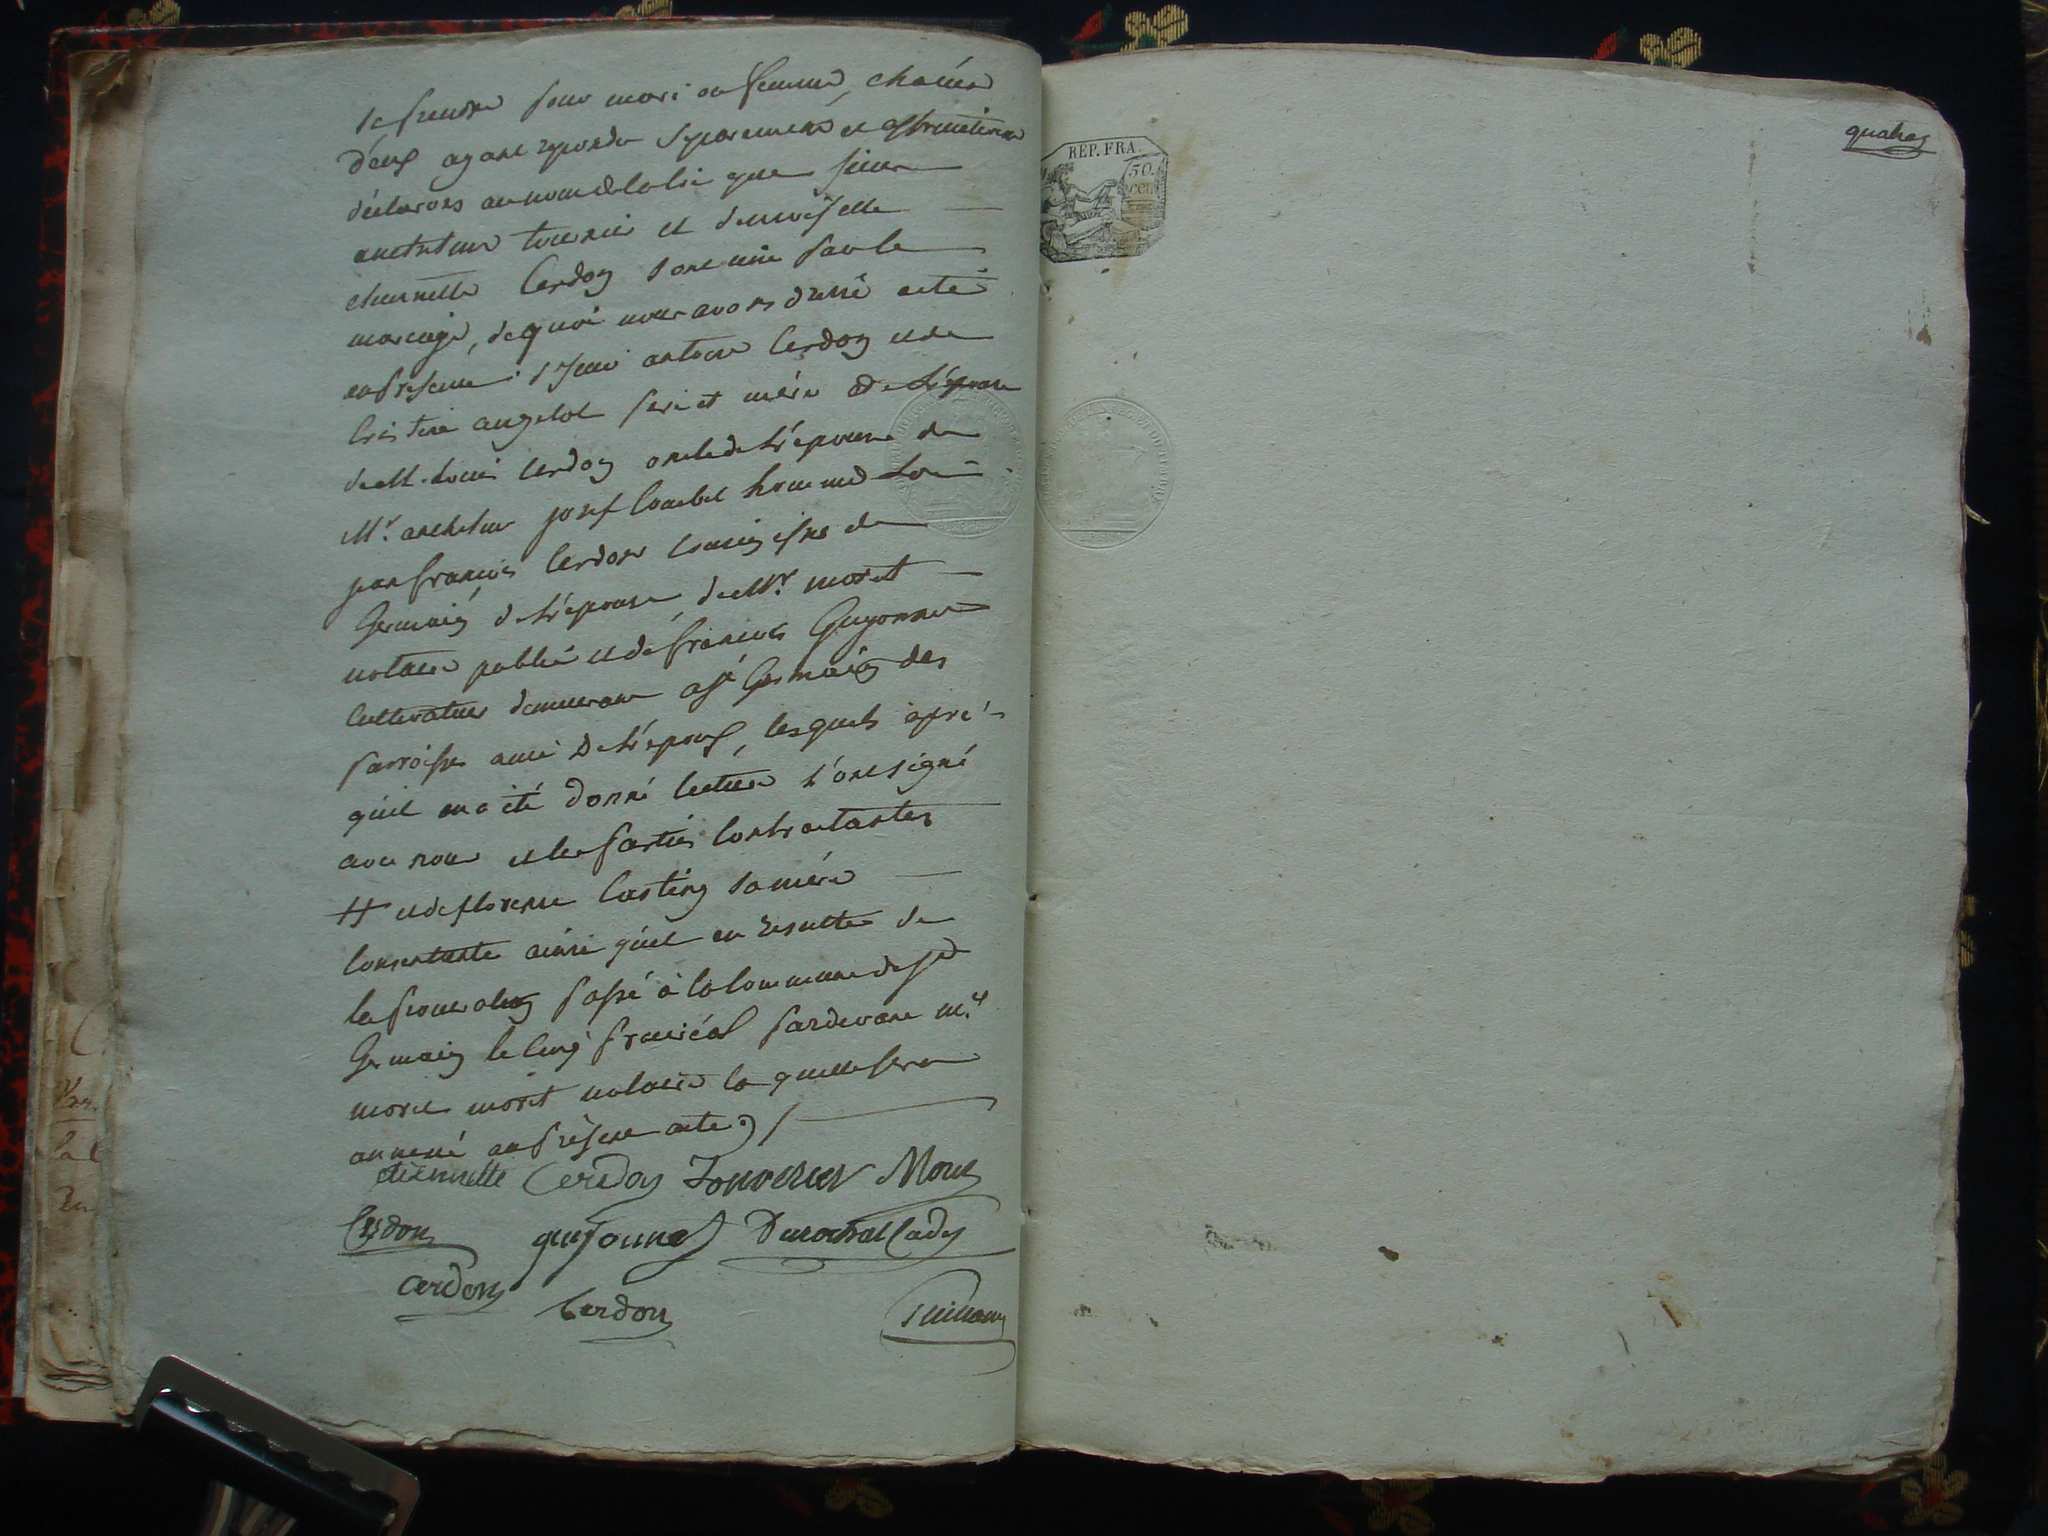 se prendre pour mari ou femme, chacun
d'eux ayant repondu séparement et affirmativement
déclarons au nom de la loi que sieur
anthelme tournier et demoiselle
etiennette Cerdon sont unis par le
mariage, de quoi nous avons dressé acte
en presence antoine Cerdon et de
Cristine angelot pere et mére de l'épouse
de M. Louis Cerdon oncle de l'épouse de
Mr. anthelme josef Combet homme Loi
jean françois Cerdon cousin de
Germain de l'épouse, de Mr. moret
notaire public et de françois Guyonnet
cultivateur demeurant a st Germain des
parroisses ami de l'époux, lesquels aprés
qu'il en a été donné lecture l'ont signé
avec nous et les parties Contractantes
# et de florence Castin sa mére
consentante ainsi qu'il en resulte de
la procuration passé à la commune de st
Germain le cinq prairéal pardevant m.e
moret notaire la quelle sera
annexé au présent acte
etiennette Cerdon Tournier Moret
Cerdon guyonnet Durochat Cady
cerdon
Cerdon
quatres
REP. FRA.
50.
cen